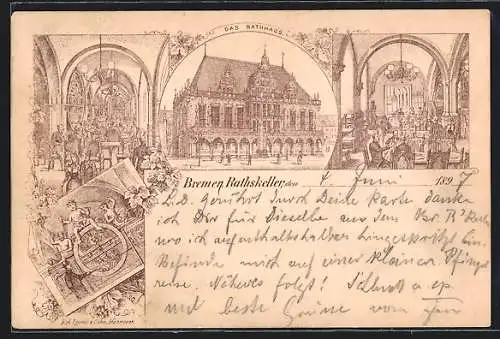 DAS RATHHAUS.
Bremen, Rathskeller, den 4. Juni 1897
L. D. Gerührt durch Deine Karte danke
ich Dir für Dieselbe aus dem Br. R' Kell
wo ich aufenthaltshalber hingespritzt bin.
Befinde mich auf einer kleinen Pfingst
reise. Näheres folgt! Schluss
und beste Grüsse vom